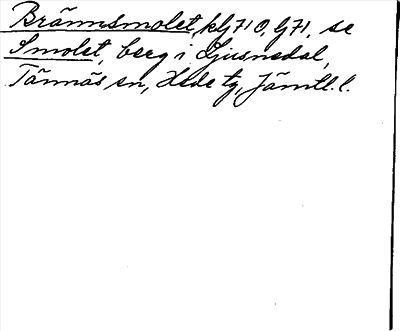 Brännsmolet, klj 71 O, Lj 71, se
Smolet, berg i Ljusnedal,
Tännäs sn, Hede tg, Jämtl. l.